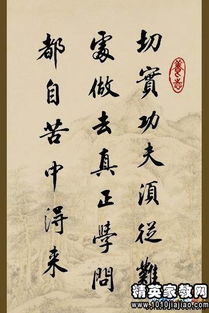 切實功夫須從難
處做去真正學問
都自苦中得来
精英家教网
www.1010jiajiao.com